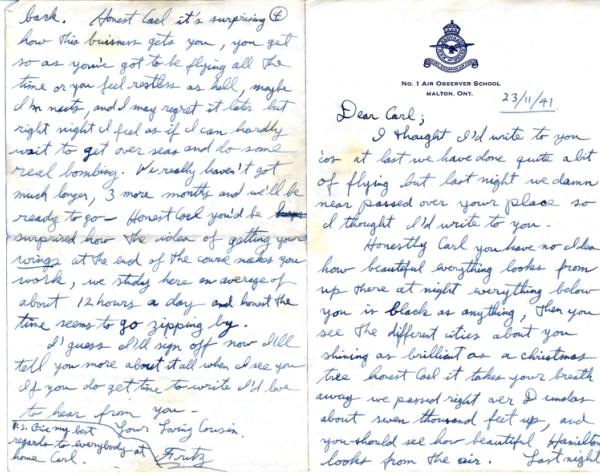 No. 1 Air Observer School
Malton, Ont.
23/11/41
Dear Carl;
I thought I'd write to you
'cos at last we have done quite a bit
of flying but last night we damn
near passed over your place so
I thought I'd write to you.
Honestly Carl you have no idea
how beautiful everything looks from
up there at night everything below
you is black as anything, then you
see the different cities about you
shining as brilliant as a christmas
tree honest Carl it takes your breath
away we passed right over Dundas
about seven thousand feet up, and
you should see how beautiful Hamilton
looks from the air. Last night
4
back. Honest Carl it's surprising
how this buisness gets you, you get
so as you've got to be flying all the
time or you feel restless as hell, maybe
I'm nuts, and I may regret it later but
right night I feel as if I can hardly
wait to get over seas and do some
real bombing. We really haven't got
much longer, 3 more months and we'll be
ready to go - Honest Carl you'd be
surprised how the idea of getting your
wings at the end of the course makes you
work, we study here on average of
about 12 hours a day and honest the
time seems to go zipping by.
I guess I'll sign off now I'll
tell you more about it all when I see you
If you do get time to write I'd love
to hear from you -
Your Loving Cousin.
Fritz
P.S. Give my best
regards to everybody at
home Carl.